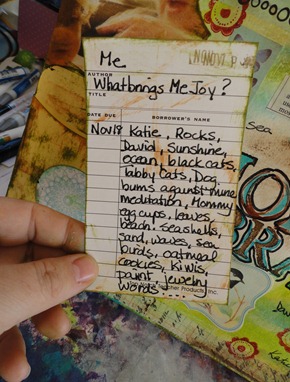 NOV 18
Me.
AUTHOR
What brings Me Joy?
TITLE
DATE DUE BORROWER'S NAME
Nov 18 Katie, Rocks,
David, Sunshine,
ocean, black cats,
tabby cats, Dog
bums against mine
meditation, Mommy
egg cups, leaves,
beach. seashells,
sand, waves, sea
birds, oatmeal
cookies, Kiwis,
paint, jewelry
words.....
Products, Inc.
sea